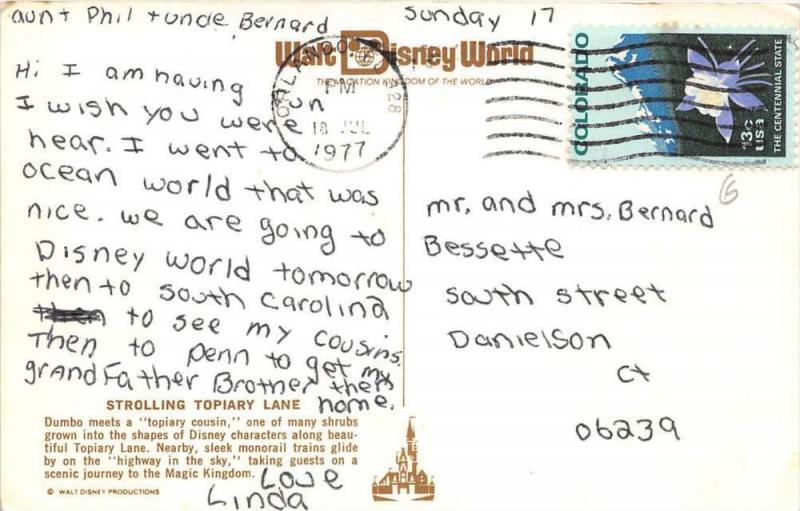 aunt Phil + uncle Bernard
Sunday 17
Walt Disney World
THE VACATION KINGDOM OF THE WORLD
Hi I am having fun
I wish you were
hear. I went to
ocean world that was
nice. we are going to
Disney world tomorrow
then to south Carolina
to see my cousins.
Then to Penn to get my
grandFather Brother then
home.
Love
Linda
ORLANDO
PM
18 JUL
1977
COLORADO
13c USA
THE CENTENNIAL STATE
6
mr. and mrs. Bernard
Bessette
south street
Danielson
ct
06239
STROLLING TOPIARY LANE
Dumbo meets a "topiary cousin," one of many shrubs
grown into the shapes of Disney characters along beau-
tiful Topiary Lane. Nearby, sleek monorail trains glide
by on the "highway in the sky," taking guests on a
scenic journey to the Magic Kingdom.
© WALT DISNEY PRODUCTIONS